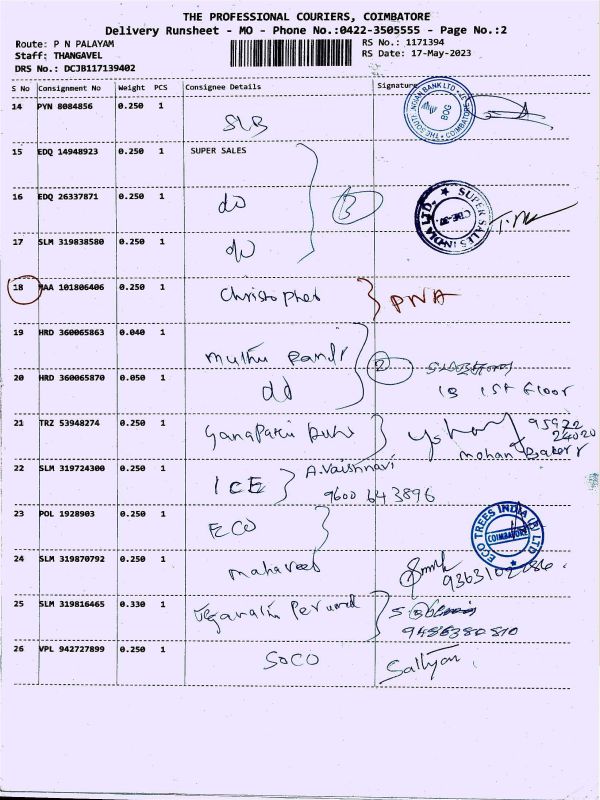 THE PROFESSIONAL COURIERS, COIMBATORE
Delivery Runsheet - MO - Phone No.:0422-3505555 - Page No.:2
Route: P N PALAYAM
RS No.: 1171394
Staff: THANGAVEL
RS Date: 17-May-2023
DRS No.: DCJB117139402
S No Consignment No Weight PCS Consignee Details Signature
14 PYN 8084856 0.250 1 SLB
THE SOUTH INDIAN BANK LTD COIMBATORE
15 EDQ 14948923 0.250 1 SUPER SALES
16 EDQ 26337871 0.250 1 do 3
SUPER SALES INDIA LTD. CBE-37.
17 SLM 319838580 0.250 1 do
18 MAA 101806406 0.250 1 Christopher PNA
19 HRD 360065863 0.040 1 Muthu Pandi
20 HRD 360065870 0.050 1 dd 2
1st Floor
21 TRZ 53948274 0.250 1 Ganapathi
95922
24020
mohan Bakery
22 SLM 319724300 0.250 1 ICE A.Vaishnavi
9600 643896
23 POL 1928903 0.250 1 ECO
ECO TREES INDIA (P) LTD COIMBATORE
24 SLM 319870792 0.250 1 mahaveer
25 SLM 319816465 0.330 1
26 VPL 942727899 0.250 1 SOCO